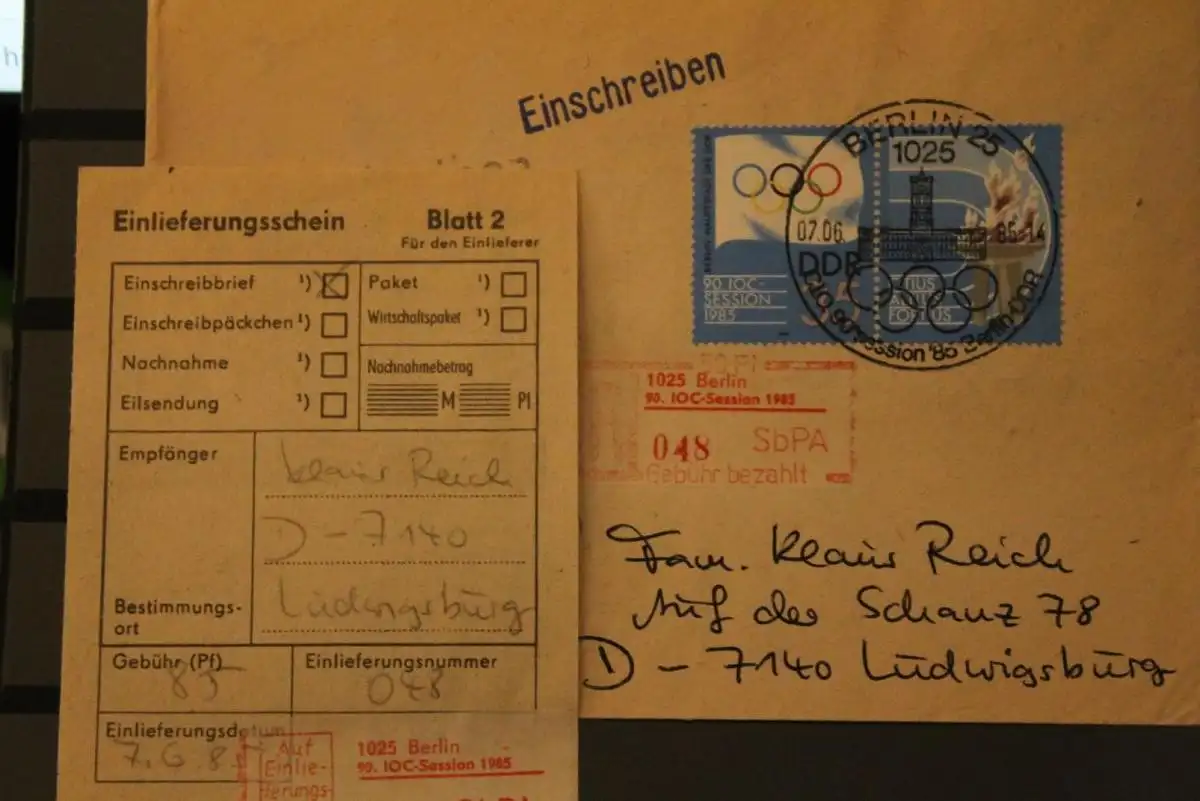 Einschreiben
BERLIN 25
1025
07.06. 85-14
DDR
90. IOC-
SESSION
1985
35
CITIUS
ALTIUS
FORTIUS
90. Session '85 Berlin-DDR
1025 Berlin
90. IOC-Session 1985
048 SbPA
Gebühr bezahlt
Fam. Klaus Reich
Auf der Schanz 78
D - 7140 Ludwigsburg
Einlieferungsschein Blatt 2
Für den Einlieferer
Einschreibbrief ¹) Paket ¹)
Einschreibpäckchen ¹) Wirtschaftspaket ¹)
Nachnahme ¹) Nachnahmebetrag
Eilsendung ¹) M Pf
Empfänger Klaus Reich
D - 7140
Bestimmungs-
ort Ludwigsburg
Gebühr (Pf) Einlieferungsnummer
85 048
Einlieferungsdatum
7.6.85
Auf
Einlie-
ferungs-
1025 Berlin
90. IOC-Session 1985